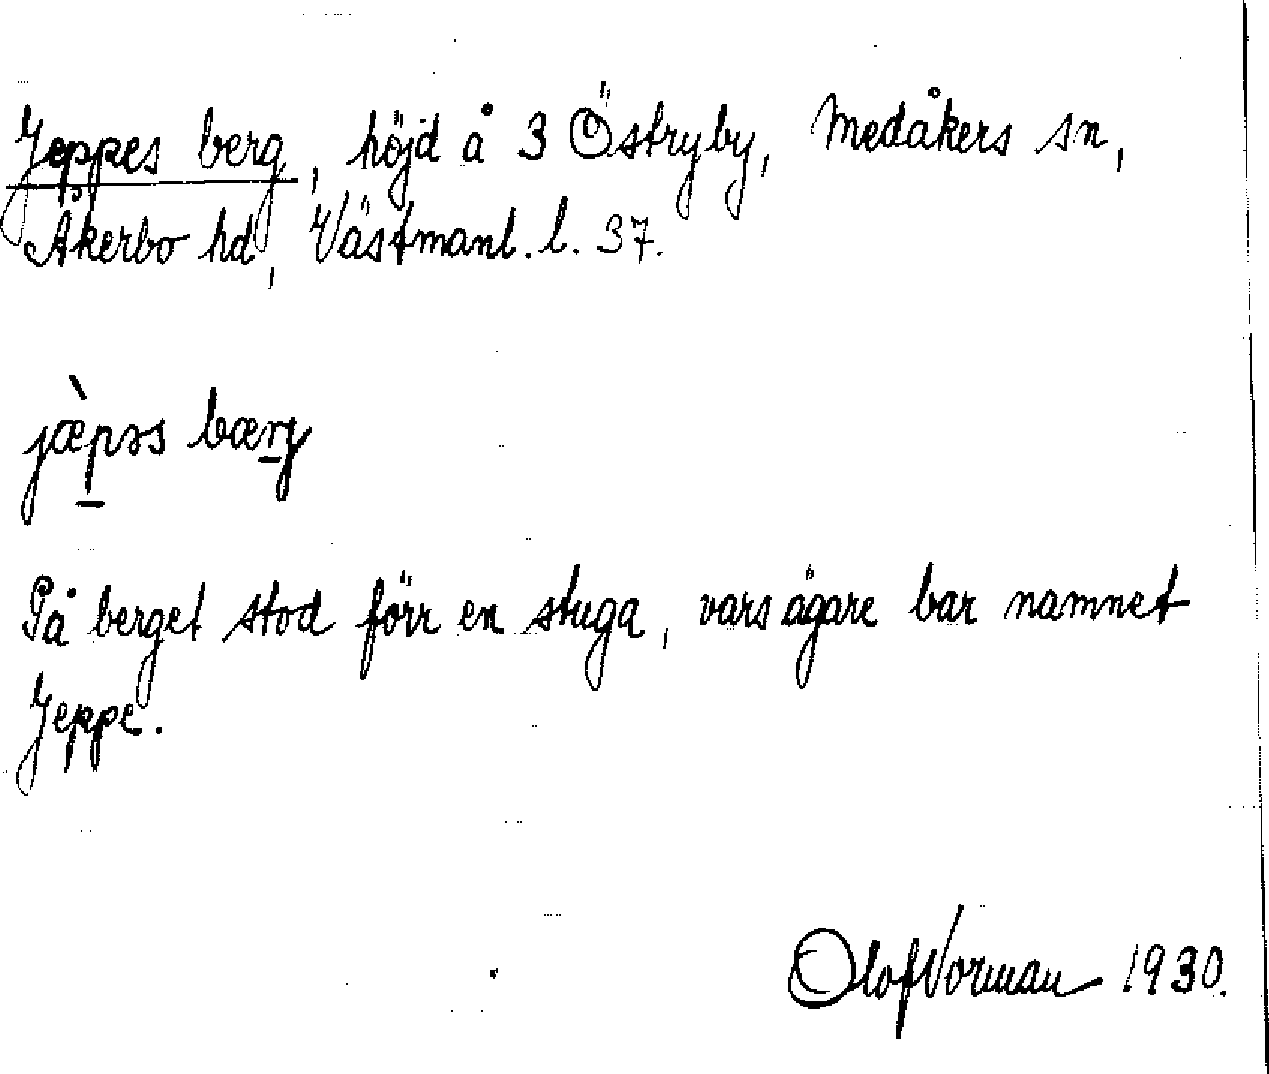 Jeppes berg, höjd å 3 Östryby, Medåkers sn,
Åkerbo hd, Västmanl. l. 37.
jæ̀p̲əs bær̲g
På berget stod förr en stuga, vars ägare bar namnet
Jeppe.
Olof Vorman 1930.